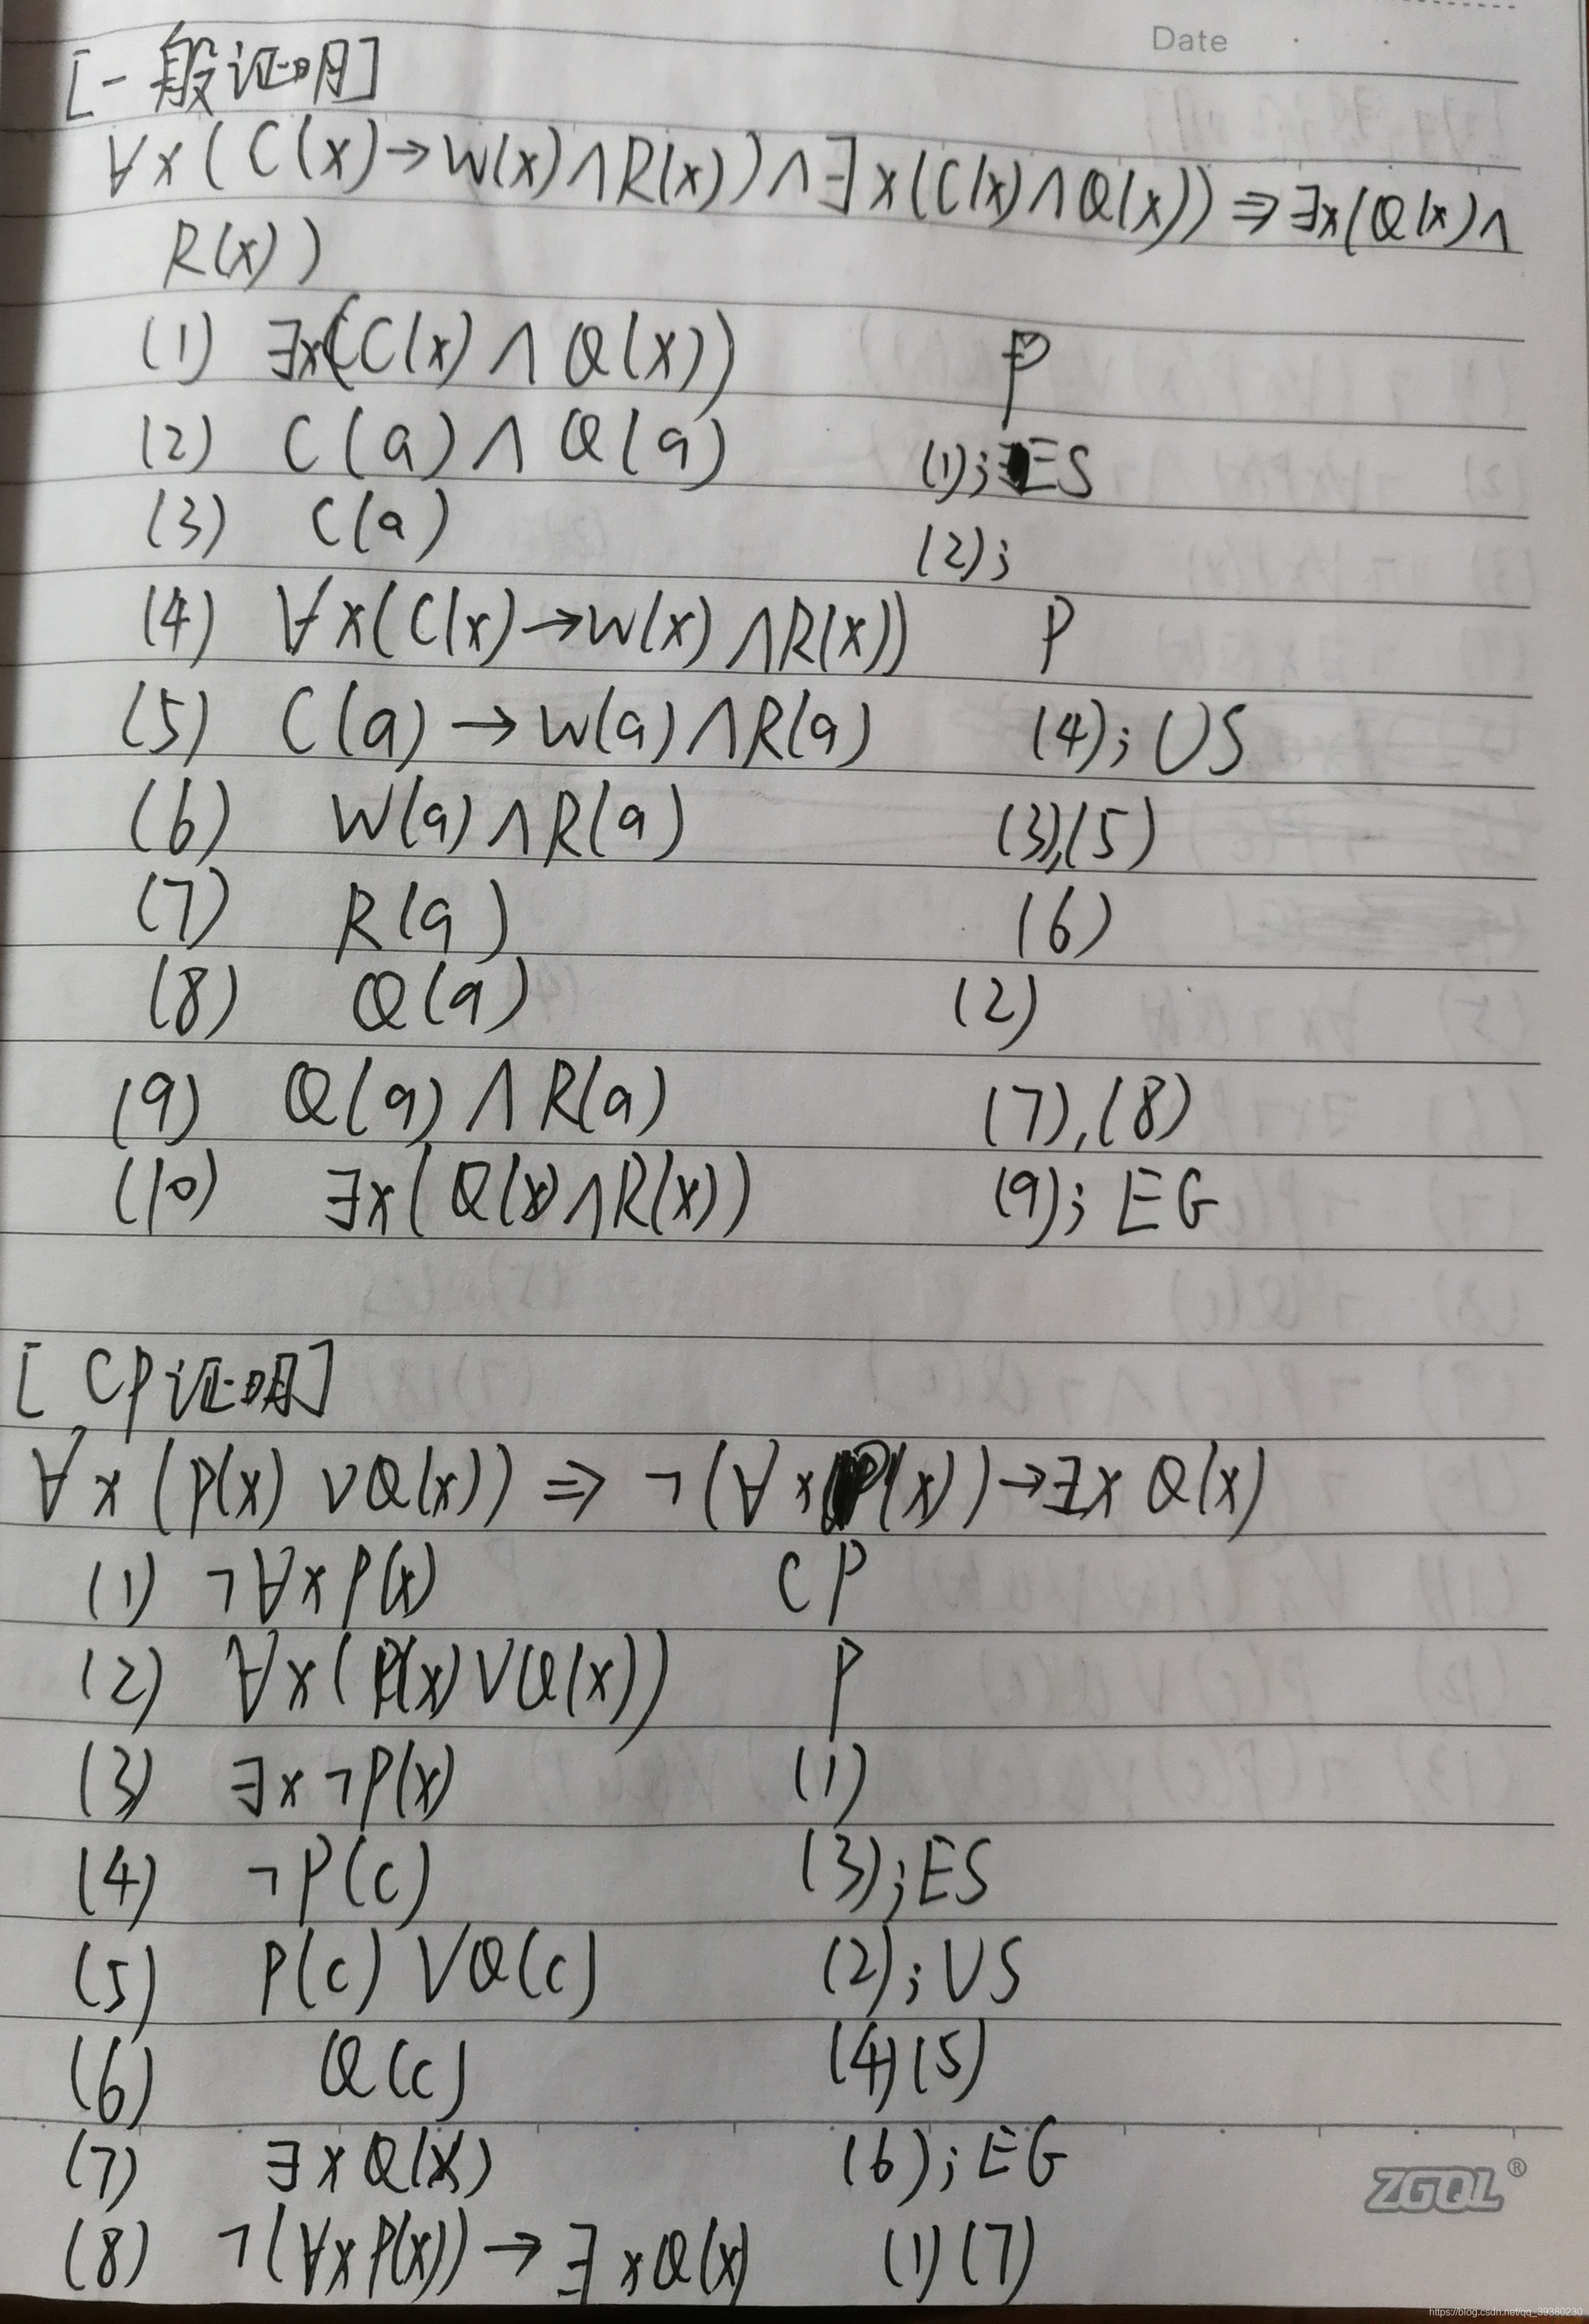 Date
[一般证明]
∀x(C(x)→W(x)∧R(x))∧∃x(C(x)∧Q(x))⇒∃x(Q(x)∧
R(x))
(1) ∃x(C(x)∧Q(x)) P
(2) C(a)∧Q(a) (1);ES
(3) C(a) (2);
(4) ∀x(C(x)→W(x)∧R(x)) P
(5) C(a)→W(a)∧R(a) (4);US
(6) W(a)∧R(a) (3),(5)
(7) R(a) (6)
(8) Q(a) (2)
(9) Q(a)∧R(a) (7),(8)
(10) ∃x(Q(x)∧R(x)) (9);EG
[CP证明]
∀x(P(x)∨Q(x))⇒¬(∀xP(x))→∃xQ(x)
(1) ¬∀xP(x) CP
(2) ∀x(P(x)∨Q(x)) P
(3) ∃x¬P(x) (1)
(4) ¬P(c) (3);ES
(5) P(c)∨Q(c) (2);US
(6) Q(c) (4)(5)
(7) ∃xQ(x) (6);EG
(8) ¬(∀xP(x))→∃xQ(x) (1)(7)
ZGQL®
https://blog.csdn.net/qq_39380230